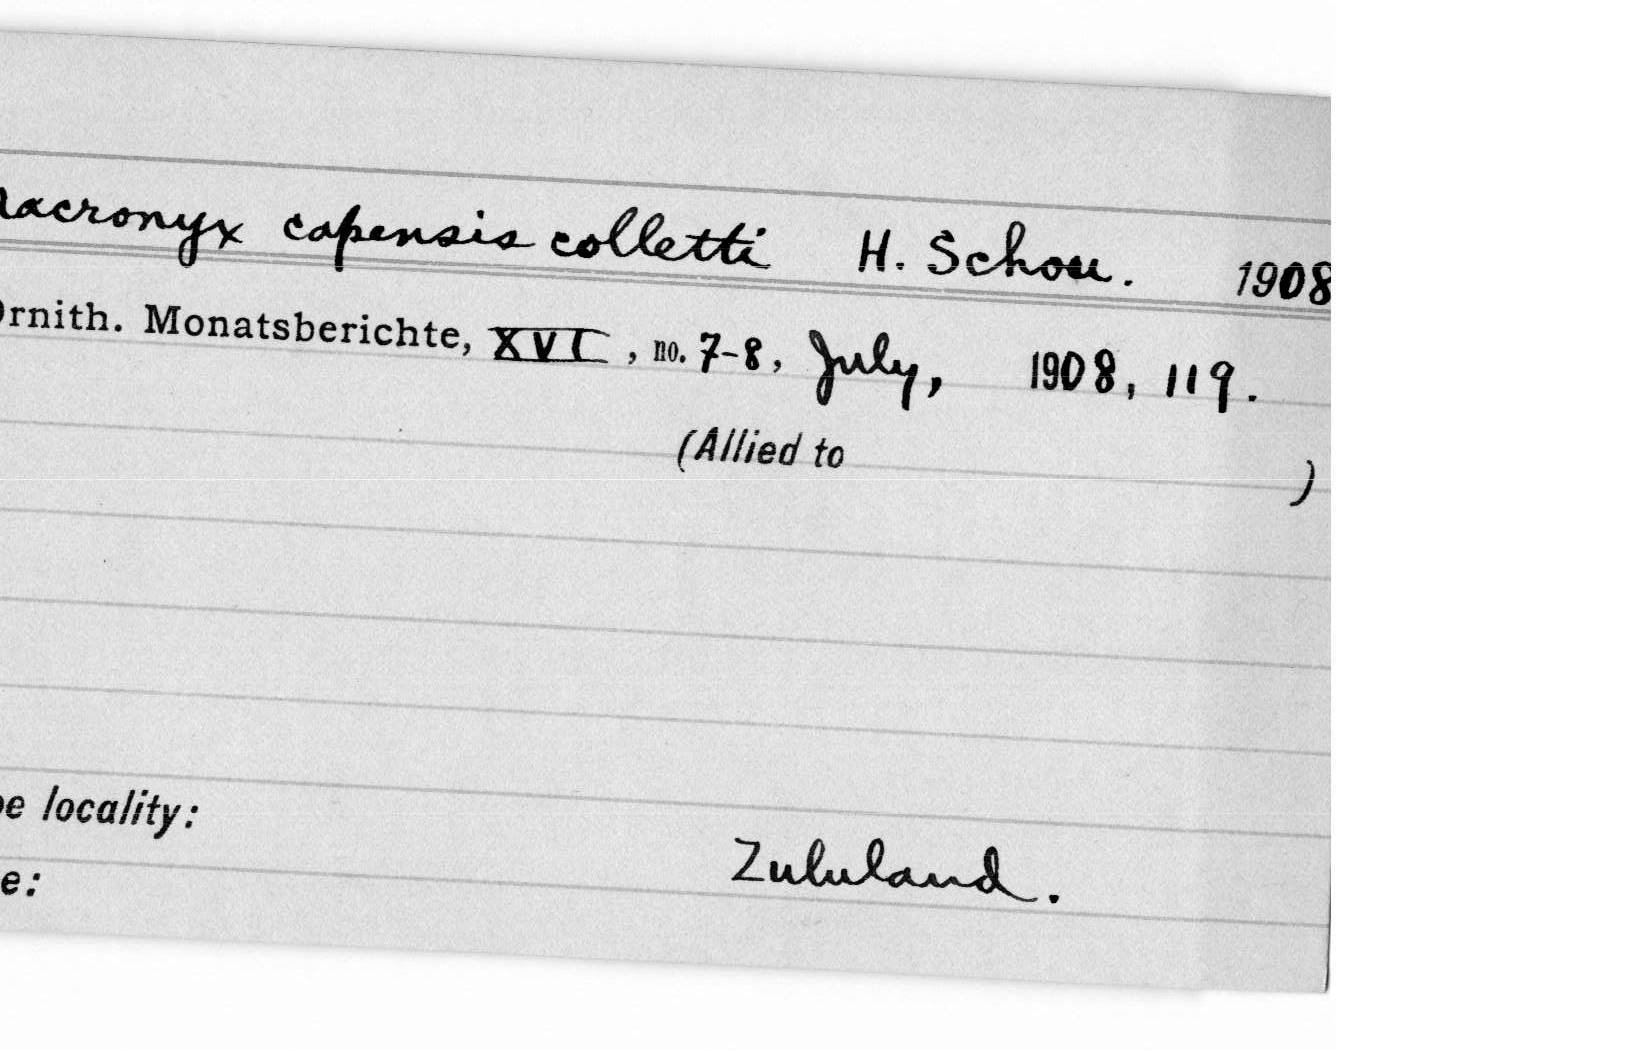 acronyx capensis colletti H. Schou. 1908
Ornith. Monatsberichte, XVI, no. 7-8, July, 1908, 119.
(Allied to )
pe locality:
Zululand.
e: